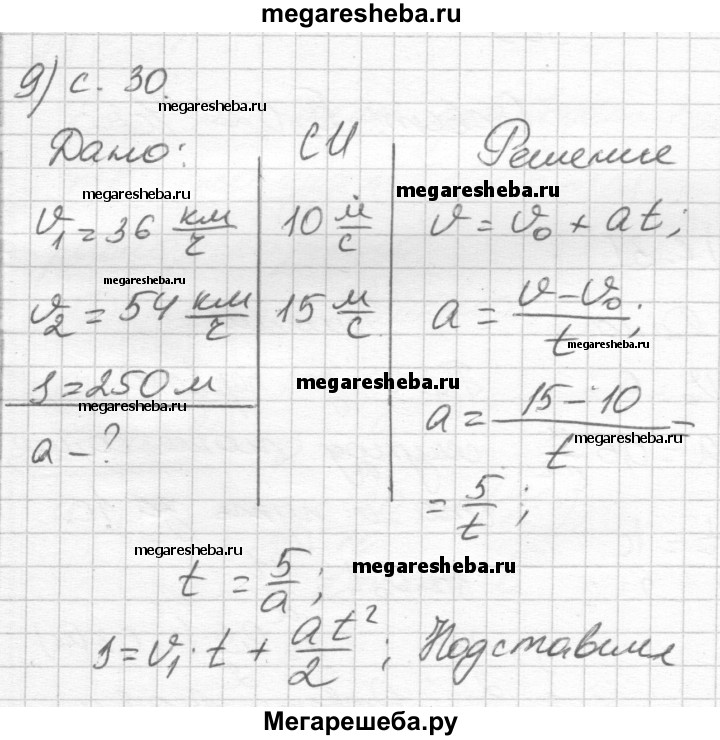 megaresheba.ru
9) с. 30.
megaresheba.ru
Дано: СИ Решение
megaresheba.ru megaresheba.ru
v₁ = 36 км/ч 10 м/с v = v₀ + at;
megaresheba.ru
v₂ = 54 км/ч 15 м/с a = (v – v₀)/t;
megaresheba.ru
s = 250 м megaresheba.ru
megaresheba.ru
a – ? a = (15 – 10)/t =
megaresheba.ru
= 5/t;
megaresheba.ru megaresheba.ru
t = 5/a;
s = v₁ · t + at²/2; Подставим
Мегарешеба.ру